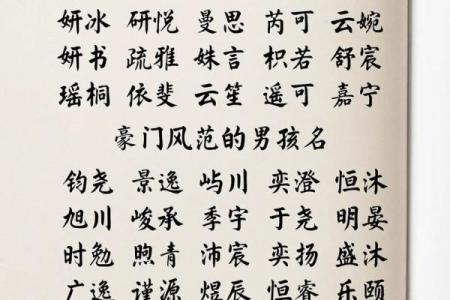 妍冰 研悦 曼思 芮可 云婉
妍书 疏雅 姝言 枳若 舒宸
瑶桐 依斐 云笙 遥可 嘉宁
豪门风范的男孩名
钧尧 景逸 屿川 奕澄 恒沐
旭川 峻承 季宇 于尧 明晏
时勉 煦青 沛宸 奕扬 盛沐
广逸 谨源 煜辰 恒睿 乐颐